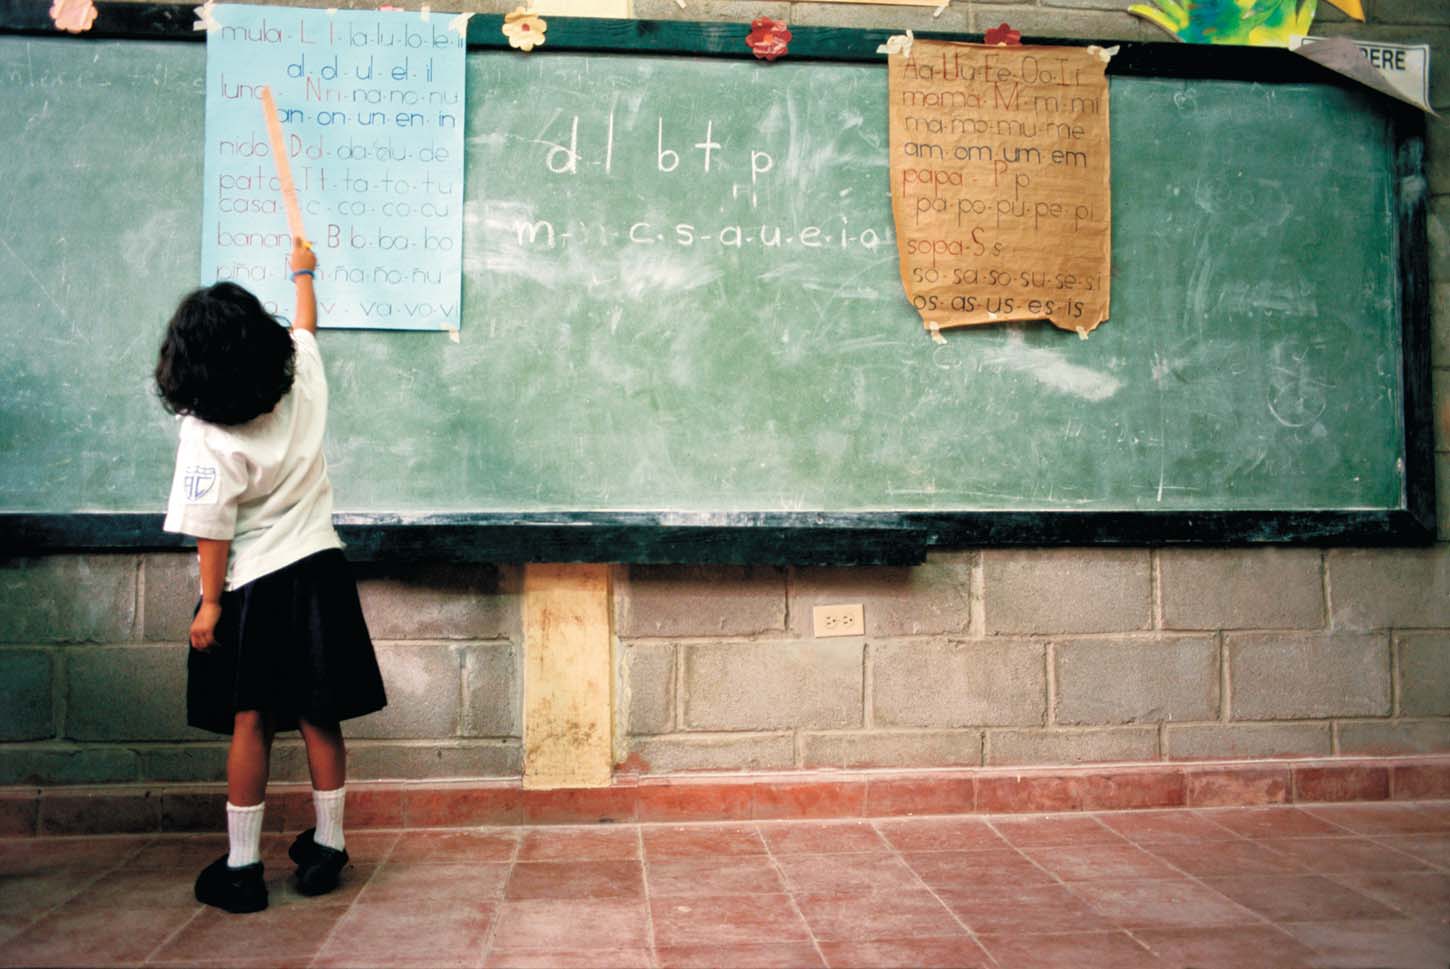 mula · L l · la · lu · lo · le · li
al · ul · el · il
luna · N n · na · no · nu
an · on · un · en · in
nido · D d · da · du · de
pato · T t · ta · to · tu
casa · c · ca · co · cu
banan B b · ba · bo
piña · ña · ño · ñu
v · va · vo · vi
d l b t p
m - c · s - a · u · e · i - o
Aa · Uu · Ee · Oo · I i
mamá · M · m · mi
ma · mo · mu · me
am · om · um · em
papá · P p
pa · po · pu · pe · pi
sopa · S s
so · sa · so · su · se · si
os · as · us · es · is
DERE